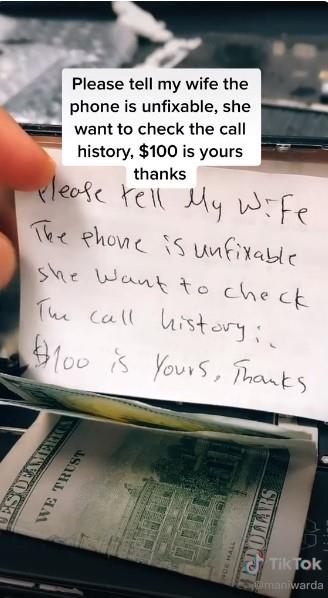 Please tell my wife the
phone is unfixable, she
want to check the call
history, $100 is yours
thanks
Please tell My Wife
The phone is unfixable
she want to check
The call history:.
$100 is Yours, Thanks
WE TRUST
TikTok
@maniwarda